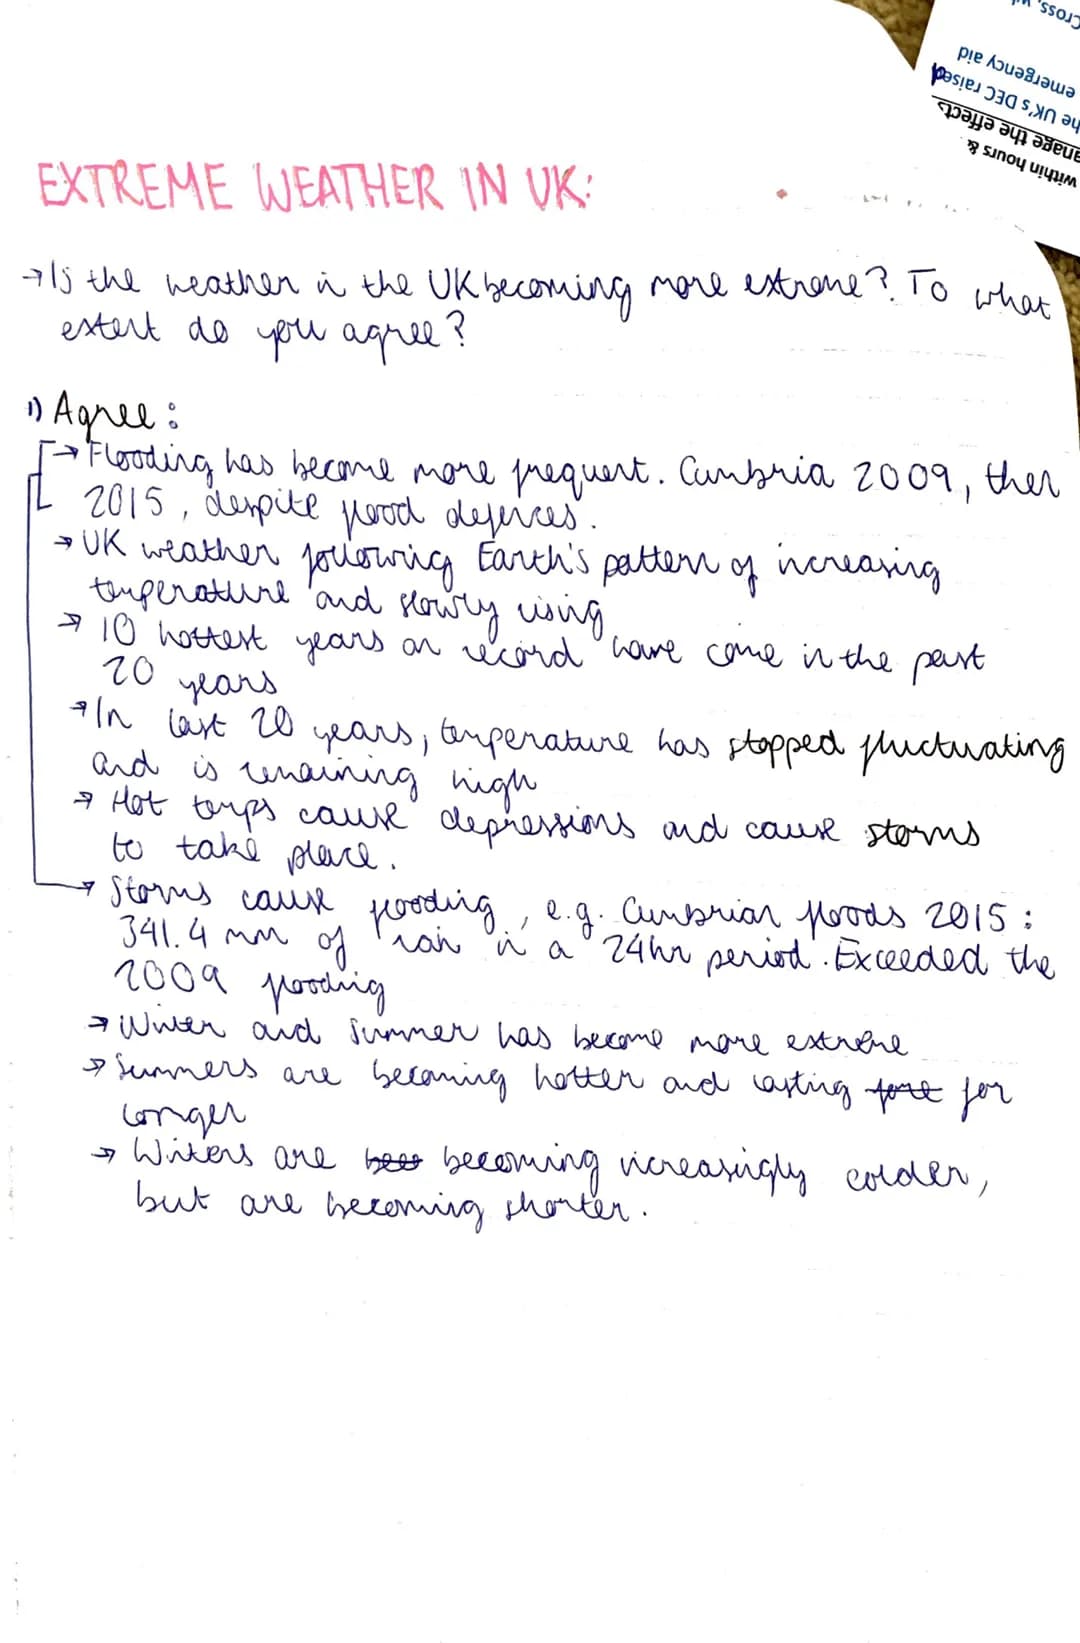 Cross,
emergency aid
he UK's DEC raised
anage the effects
within hours &
EXTREME WEATHER IN UK:
→ Is the weather in the UK becoming more extreme? To what
extent do you agree?
1) Agree:
→ Flooding has become more frequent. Cumbria 2009, then
2015, despite flood defences.
→ UK weather following Earth's pattern of increasing
temperature and slowly rising
→ 10 hottest years on record have come in the past
20 years
→ In last 20 years, temperature has stopped fluctuating
and is remaining high
→ Hot temps cause depressions and cause storms
to take place.
→ Storms cause flooding, e.g. Cumbrian floods 2015:
341.4 mm of rain in a 24hr period. Exceeded the
2009 flooding
→ Winter and summer has become more extreme
→ Summers are becoming hotter and lasting for
longer
→ Winters are becoming increasingly colder,
but are becoming shorter.